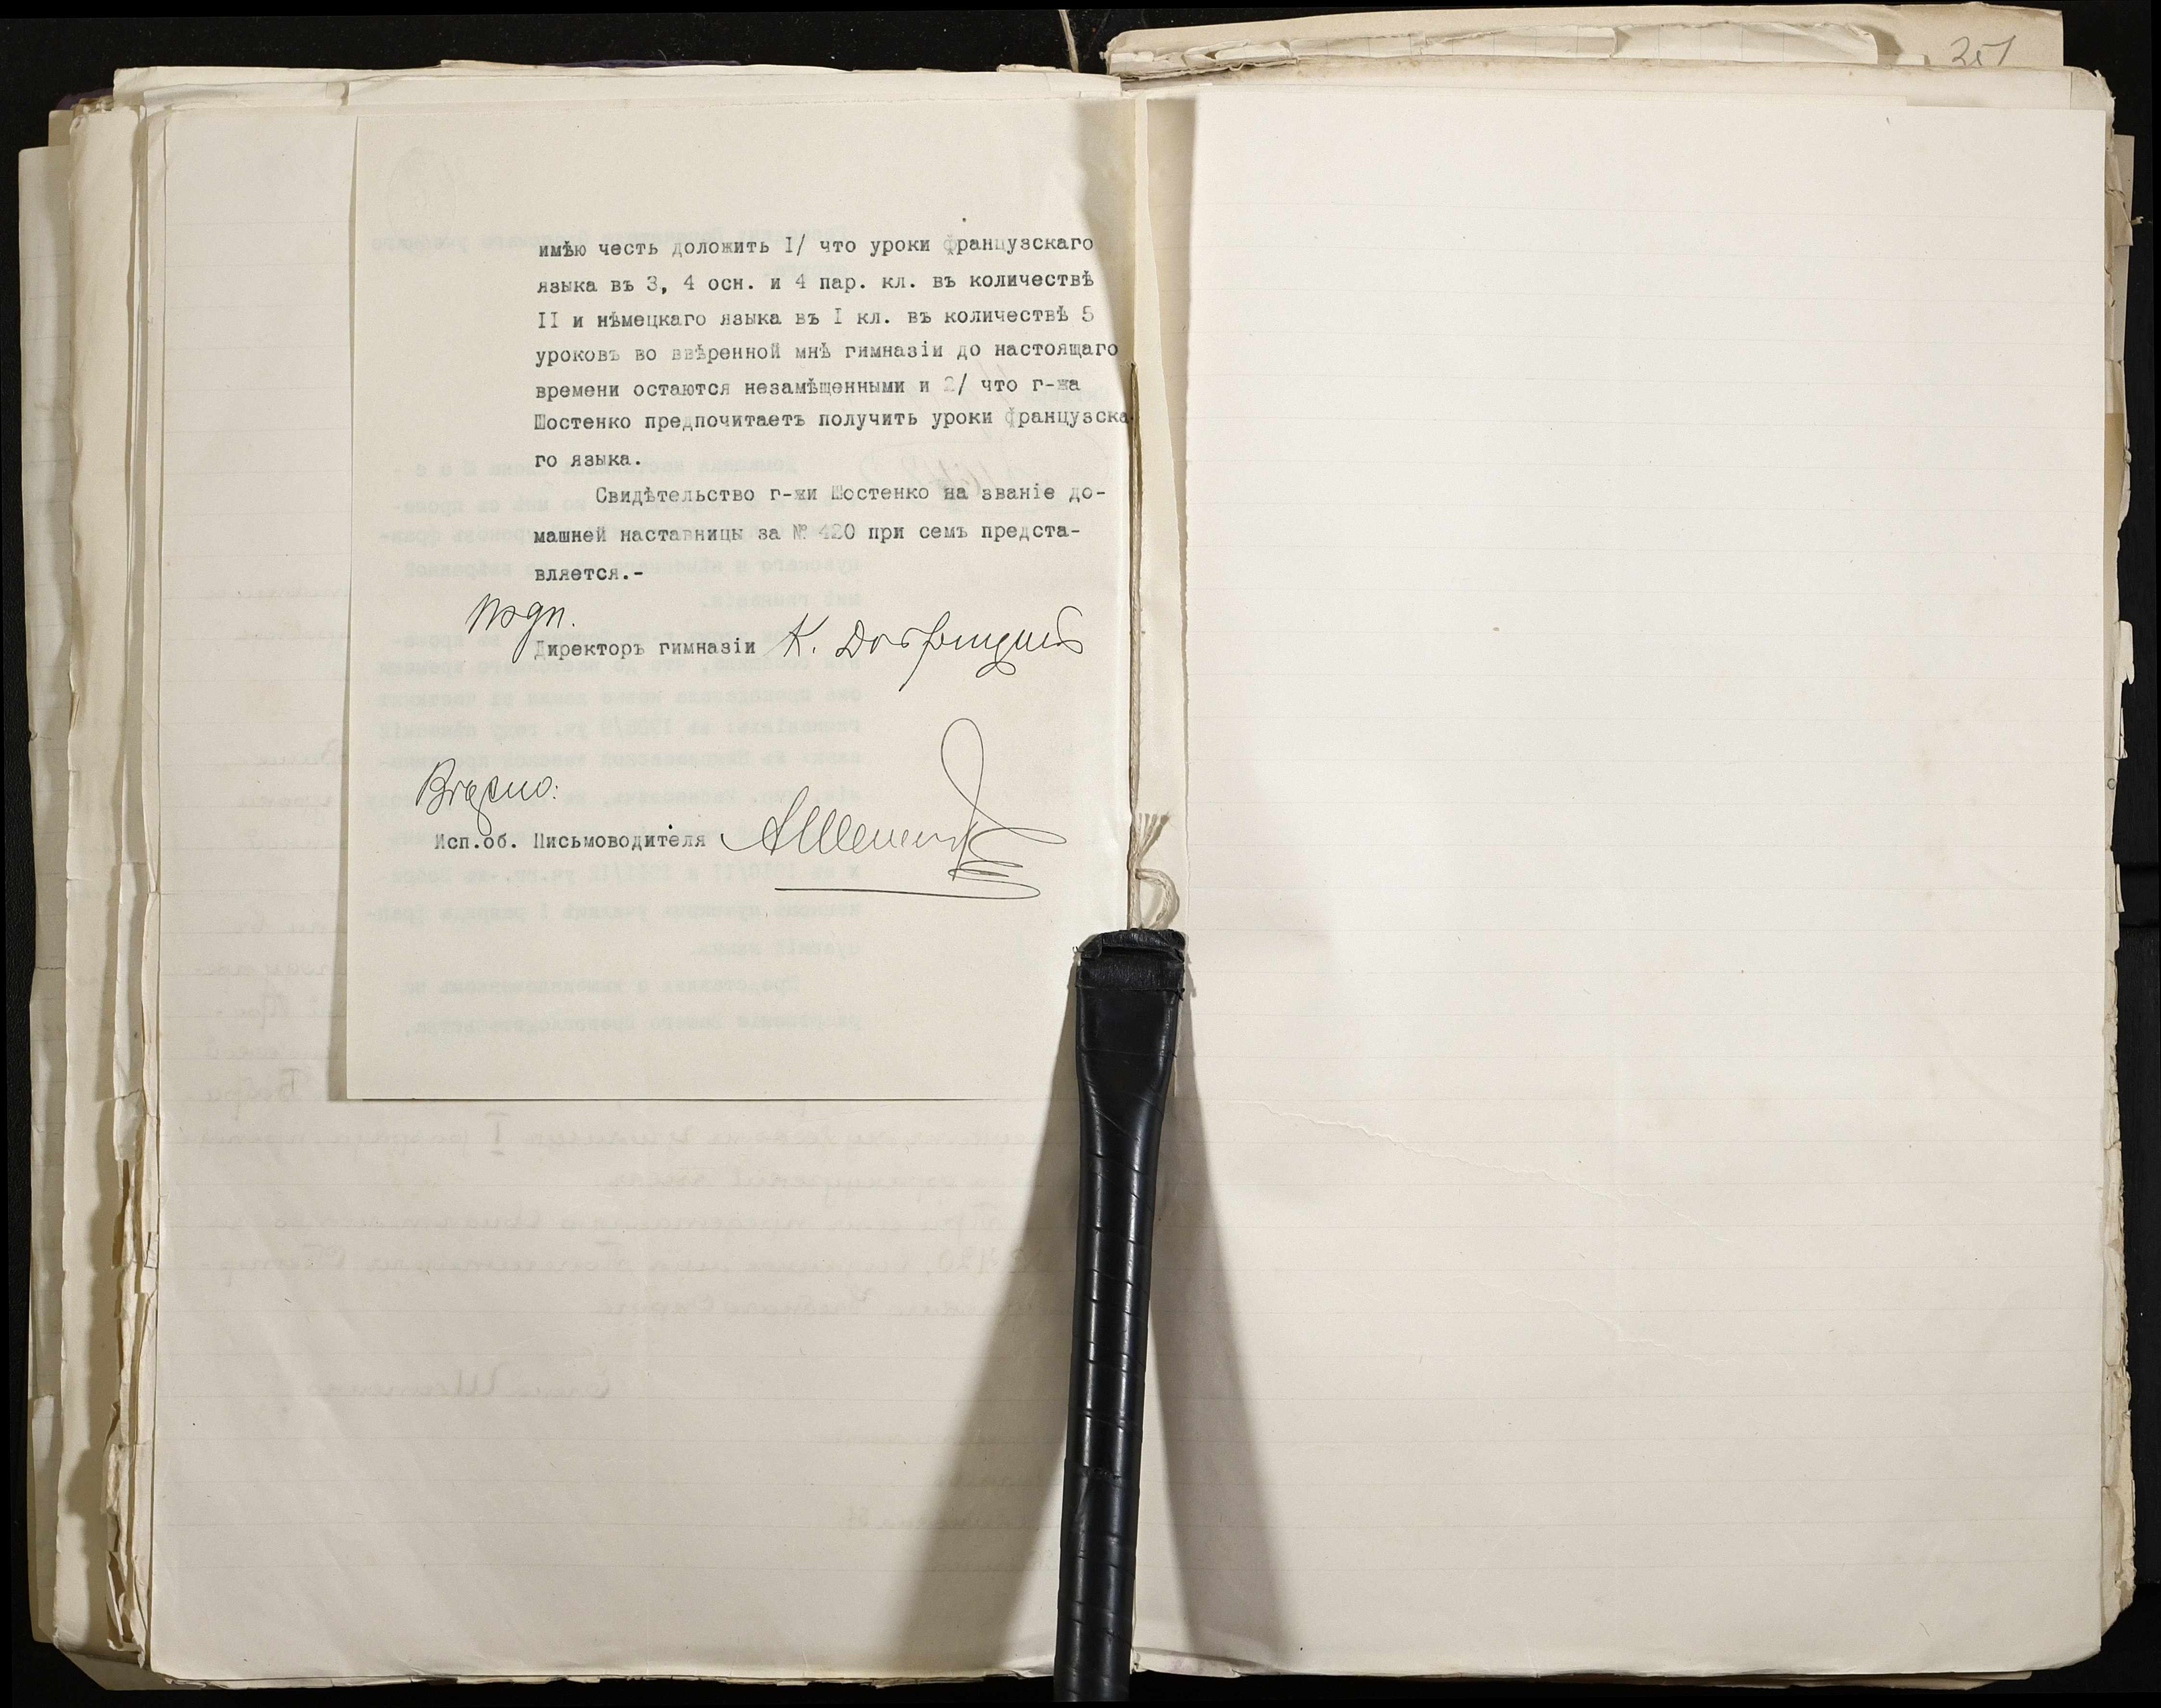 251
имѣю честь доложить I/ что уроки французскаго
языка въ 3, 4 осн. и 4 пар. кл. въ количествѣ
II и нѣмецкаго языка въ I кл. въ количествѣ 5
уроковъ во ввѣренной мнѣ гимназіи до настоящаго
времени остаются незамѣщенными и 2/ что г-жа
Шостенко предпочитаетъ получить уроки французска-
го языка.
Свидѣтельство г-жи Шостенко на званіе до-
машней наставницы за № 420 при семъ предста-
вляется.-
Подп.
Директоръ гимназіи К.
Вѣрно:
Исп.об. Письмоводителя